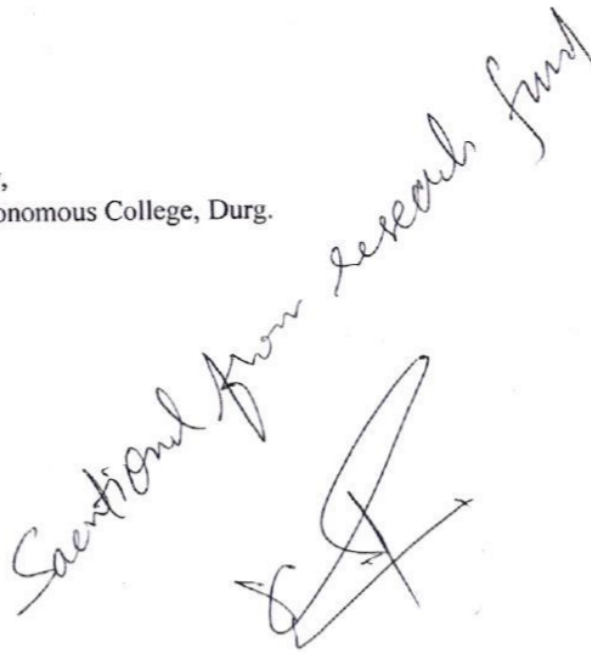 ,
onomous College, Durg.
Sanctioned from research fund